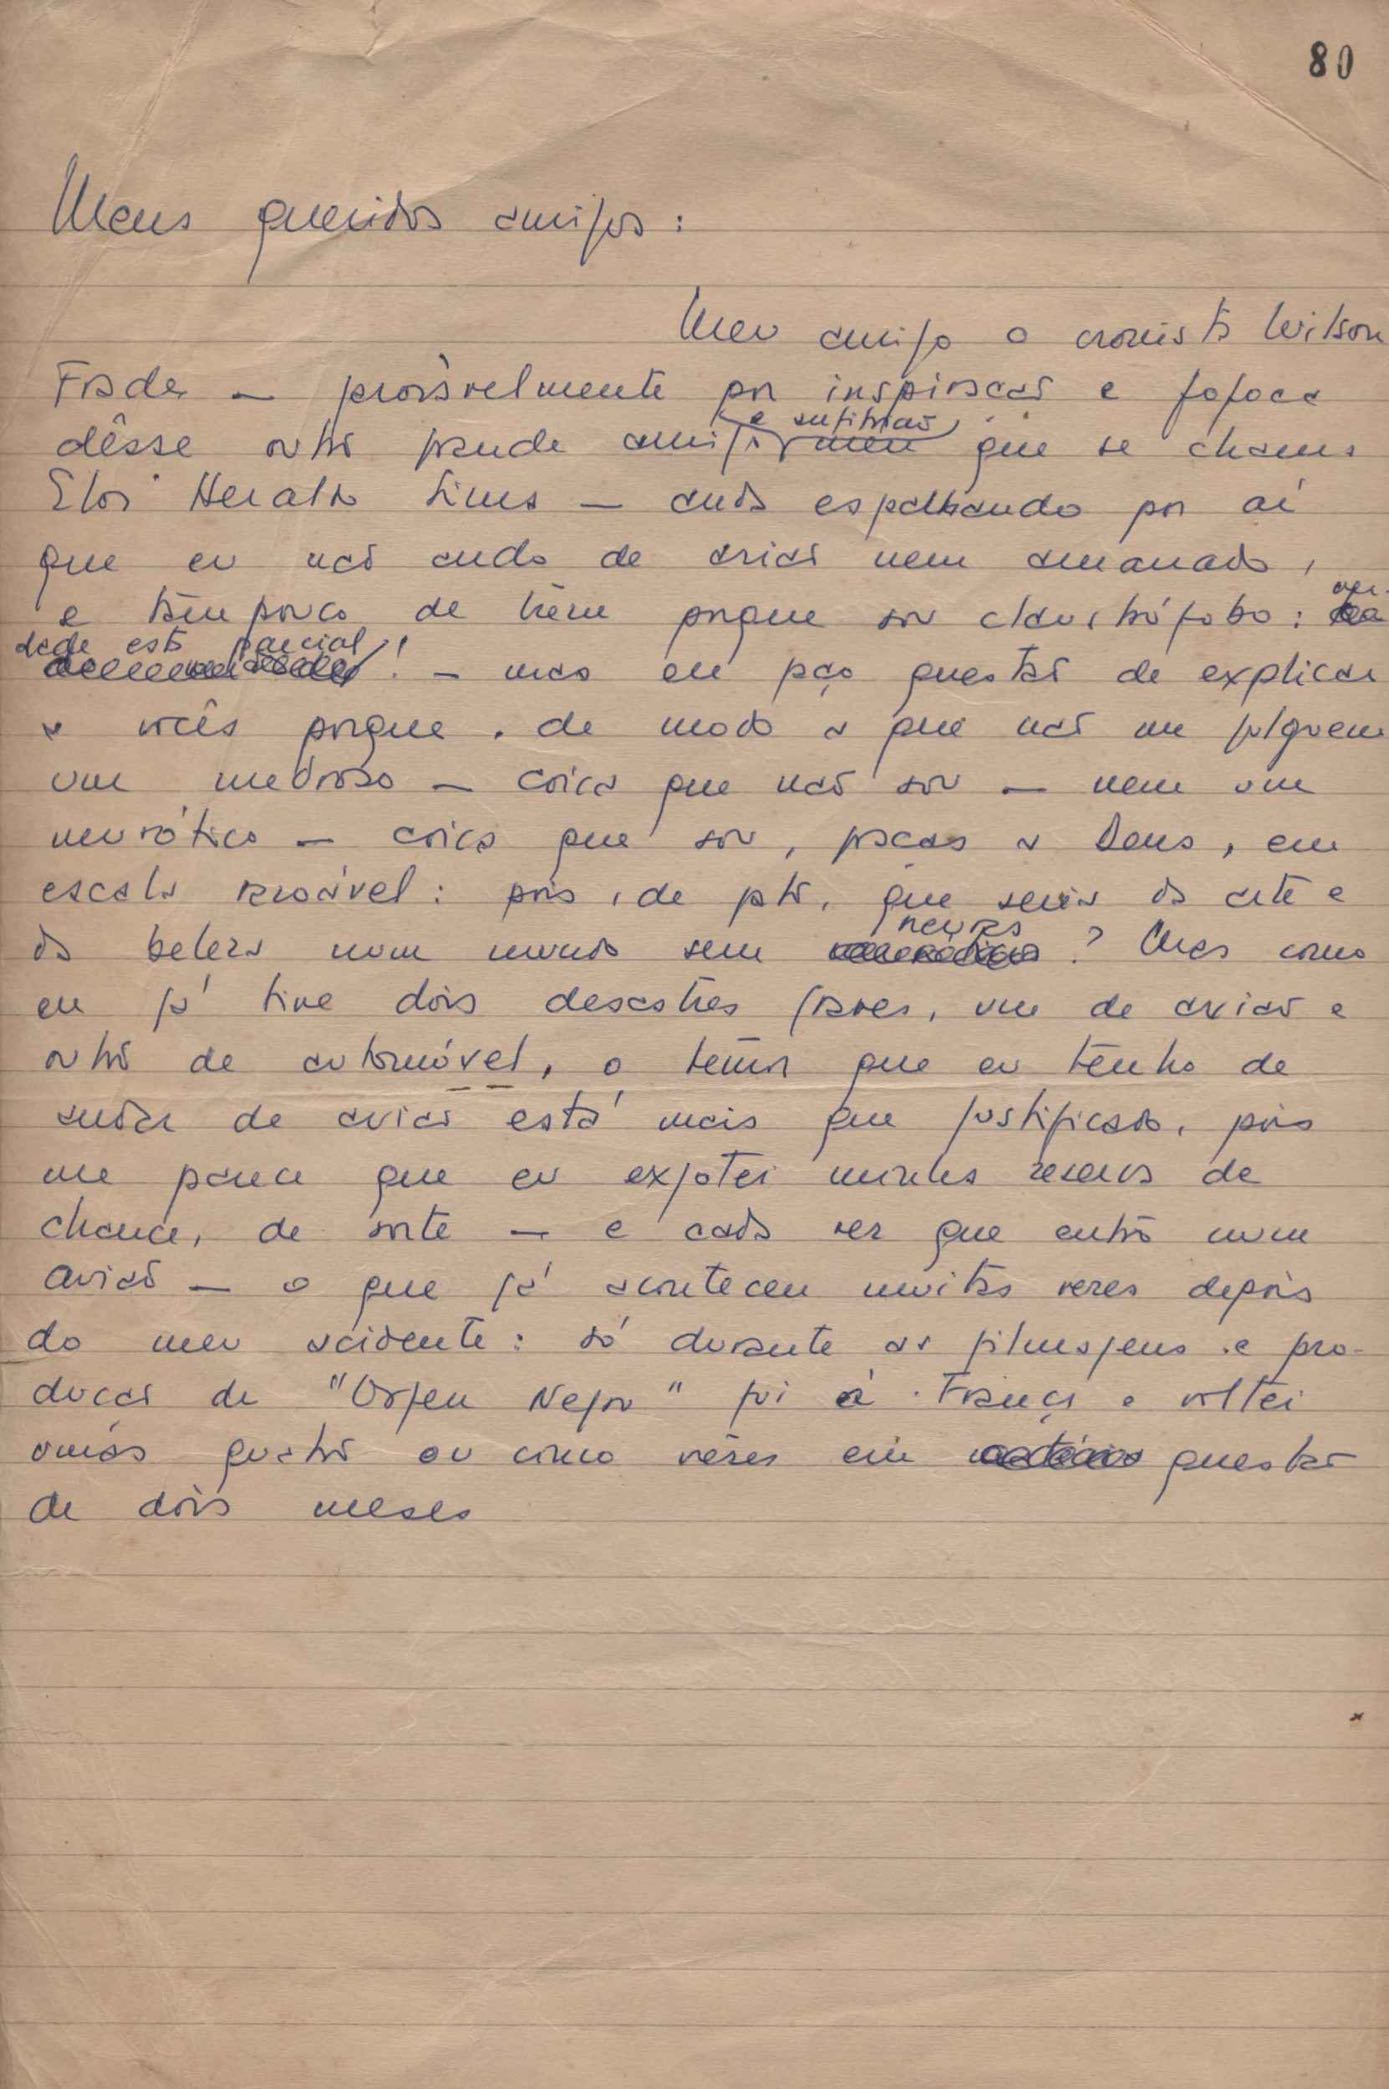 80
Meus queridos amigos:
Meu amigo o cronista Wilson
Frade — provàvelmente por inspiração e fofoca
e sutilíssimo
dêsse outro grande amigo meu que se chama
Eloi Heraldo Lima — anda espalhando por aí
que eu não ando de avião nem amarrado,
e tampouco de trem porque sou claustrófobo: ver-
dade esta parcial!
— mas eu faço questão de explicar
a vocês porque, de modo a que não me julguem
um medroso — coisa que não sou — nem um
neurótico — coisa que sou, graças a Deus, em
escala razoável: pois, de fato, que seria da arte e
neuras
da beleza num mundo sem ? Mas como
eu já tive dois desastres graves, um de avião e
outro de automóvel, o temor que eu tenho de
andar de avião está mais que justificado, pois
me parece que eu exgotei minha reserva de
chance, de sorte — e cada vez que entro num
avião — o que já aconteceu muitas vezes depois
do meu acidente: só durante as filmagens e pro-
dução de "Orfeu Negro" fui à França e voltei
umas quatro ou cinco vêzes em questão
de dois meses